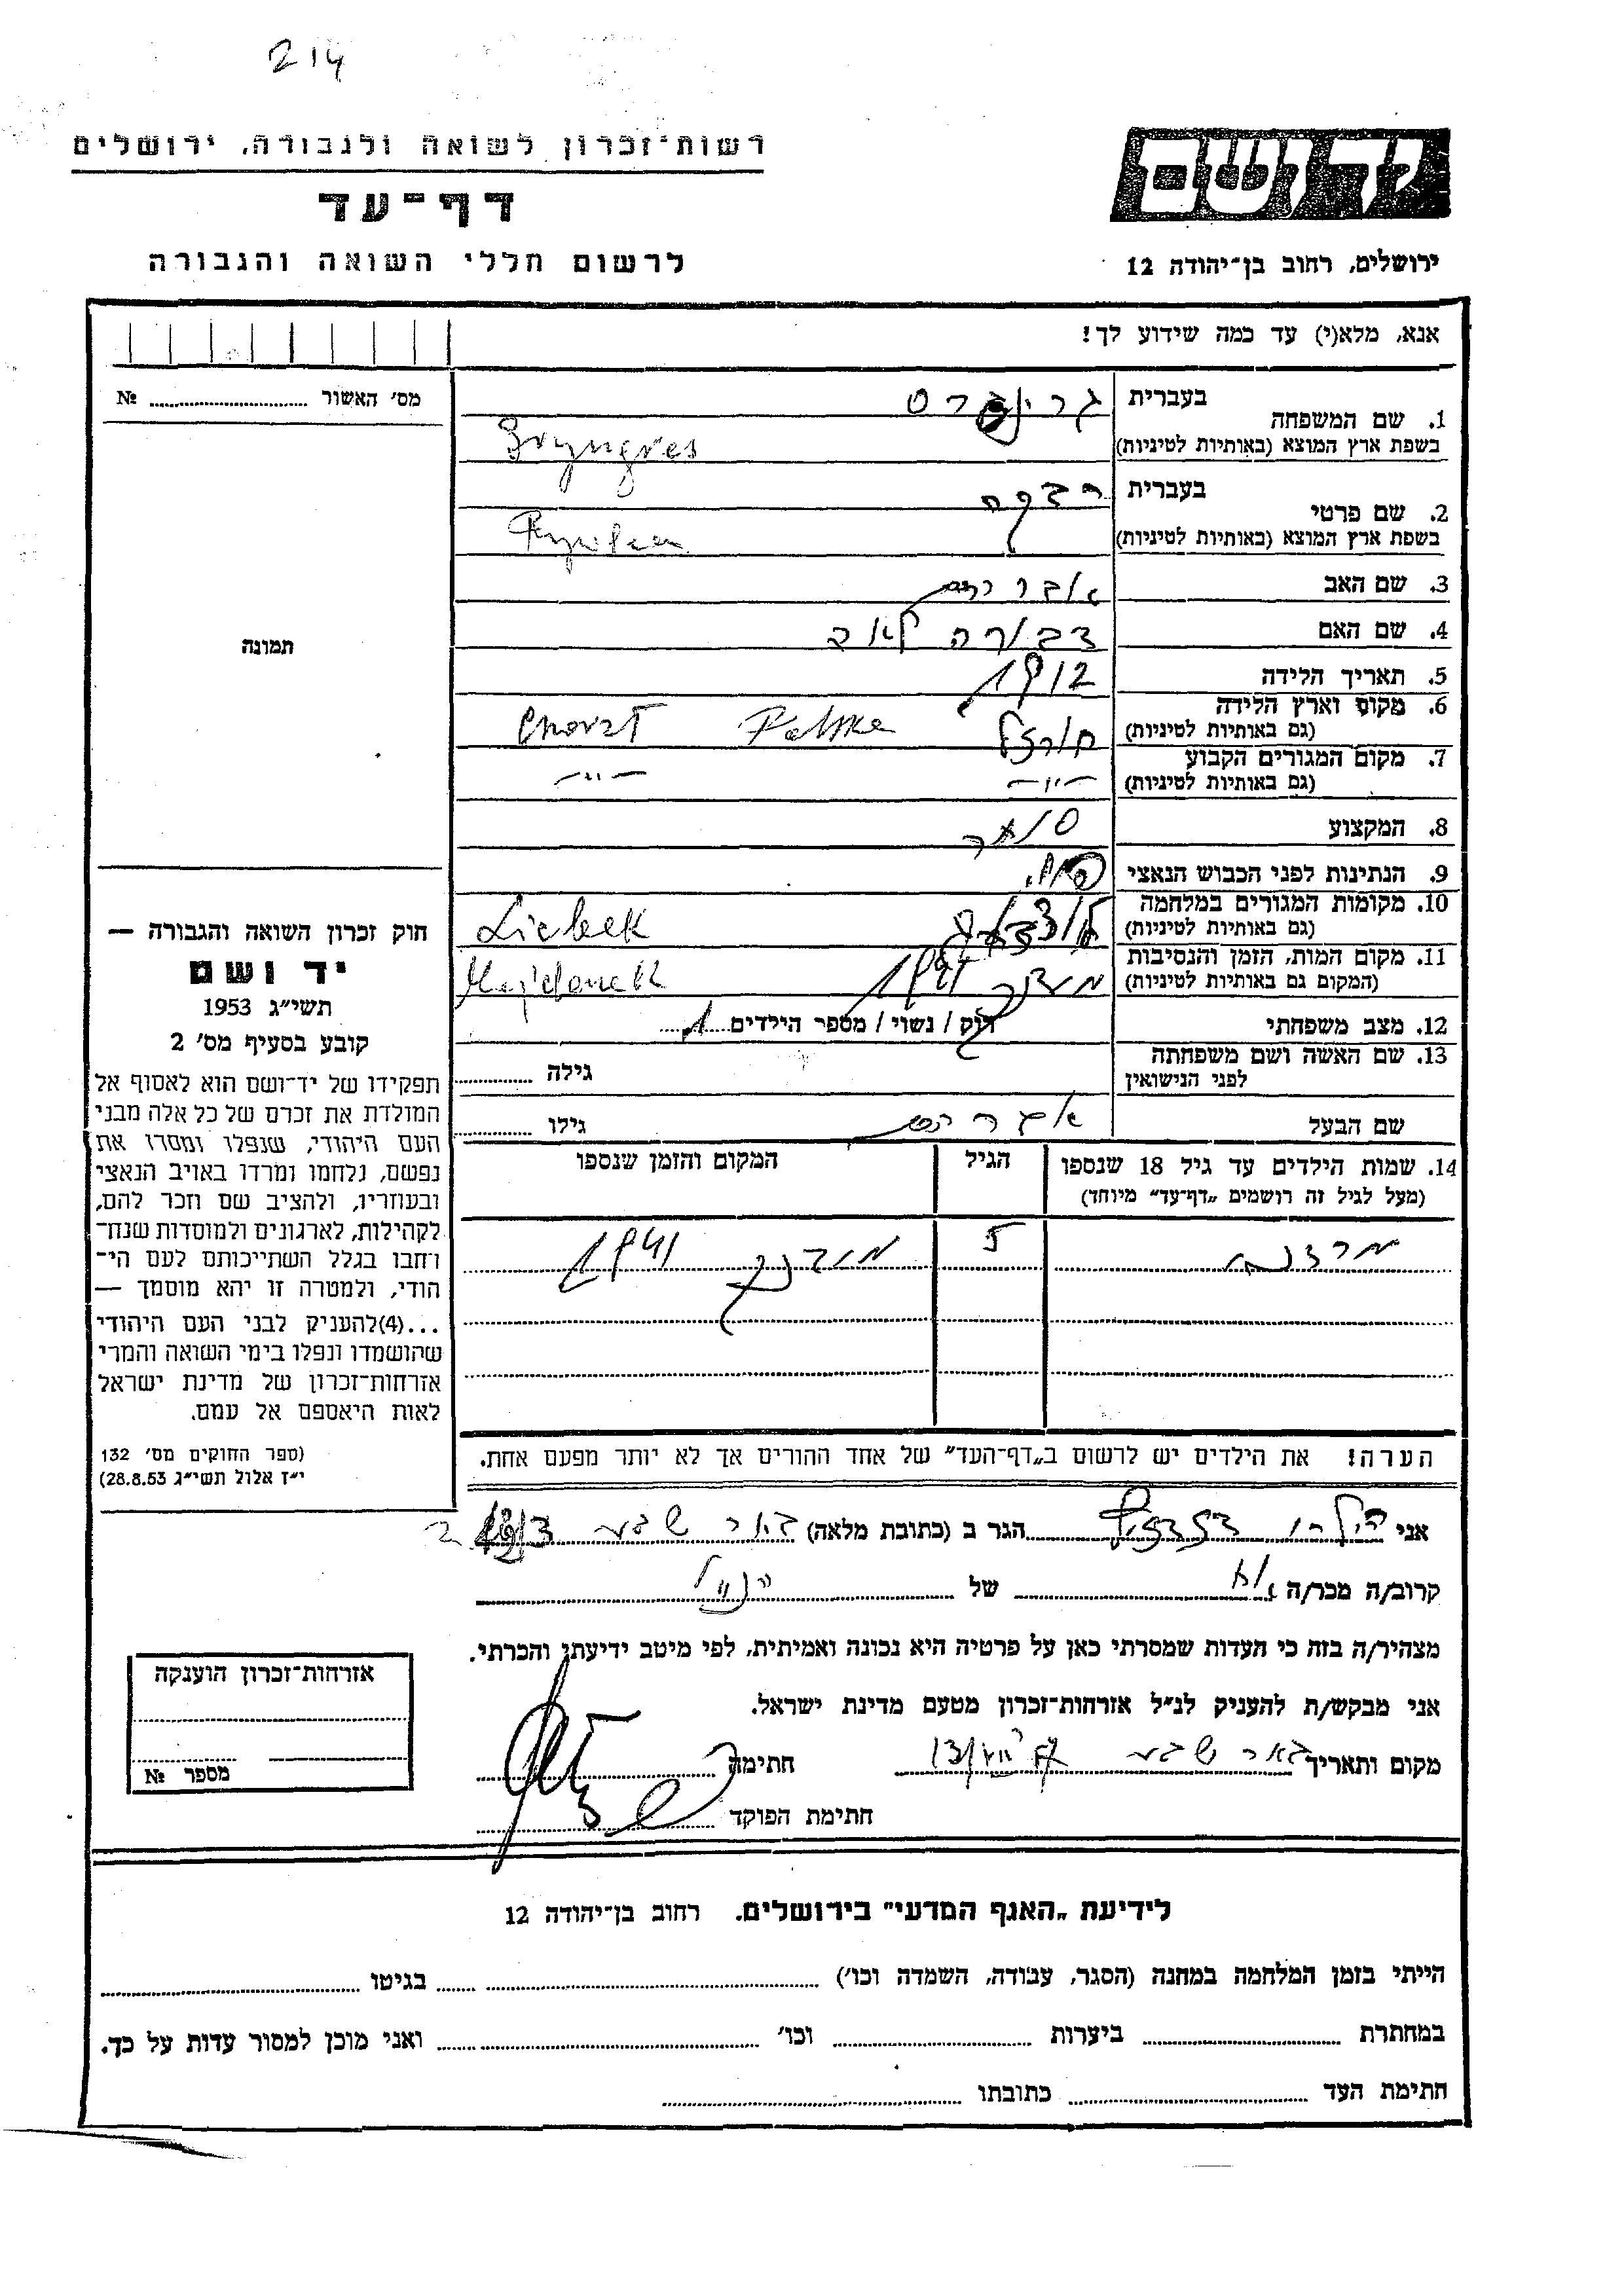 214
רשות־זכרון לשואה ולגבורה, ירושלים
דף־עד
לרשום חללי השואה והגבורה
יד ושם
ירושלים, רחוב בן־יהודה 12
אנא, מלא(י) עד כמה שידוע לך!
מס׳ האשור № 
תמונה
1. שם המשפחה
בעברית
בשפת ארץ המוצא (באותיות לטיניות)
2. שם פרטי
בעברית רבקה
בשפת ארץ המוצא (באותיות לטיניות)
3. שם האב אברהם
4. שם האם דבורה לאה
5. תאריך הלידה 1912
6. מקום וארץ הלידה
(גם באותיות לטיניות) חורזל Polska Chorzl
7. מקום המגורים הקבוע
(גם באותיות לטיניות) -"- -"-
8. המקצוע סוחר
9. הנתינות לפני הכבוש הנאצי פול.
10. מקומות המגורים במלחמה
(גם באותיות לטיניות)
11. מקום המות, הזמן והנסיבות
(המקום גם באותיות לטיניות) 1941 Majdanek
12. מצב משפחתי רוק / נשוי / מספר הילדים 1
13. שם האשה ושם משפחתה
לפני הנישואין
גילה
שם הבעל אברהם גילו
14. שמות הילדים עד גיל 18 שנספו
(מעל לגיל זה רושמים „דף־עד" מיוחד)
הגיל
המקום והזמן שנספו
5 1941
הערה! את הילדים יש לרשום ב„דף־העד" של אחד ההורים אך לא יותר מפעם אחת.
חוק זכרון השואה והגבורה —
יד ושם
תשי״ג 1953
קובע בסעיף מס׳ 2
תפקידו של יד־ושם הוא לאסוף אל
המולדת את זכרם של כל אלה מבני
העם היהודי, שנפלו ומסרו את
נפשם, נלחמו ומרדו באויב הנאצי
ובעוזריו, ולהציב שם וזכר להם,
לקהילות, לארגונים ולמוסדות שנח־
רחבו בגלל השתייכותם לעם הי־
הודי, ולמטרה זו יהא מוסמך —
...(4)להעניק לבני העם היהודי
שהושמדו ונפלו בימי השואה והמרי
אזרחות־זכרון של מדינת ישראל
לאות היאספם אל עמם.
(ספר החוקים מס׳ 132
י״ז אלול תשי״ג 28.8.53)
אני הגר ב (כתובת מלאה) באר שבע
קרוב/ה מכר/ה של הנ"ל
מצהיר/ה בזה כי העדות שמסרתי כאן על פרטיה היא נכונה ואמיתית, לפי מיטב ידיעתי והכרתי.
אני מבקש/ת להעניק לנ״ל אזרחות־זכרון מטעם מדינת ישראל.
מקום ותאריך באר שבע חתימה
חתימת הפוקד
אזרחות־זכרון הוענקה
מספר №
לידיעת „האגף המדעי" בירושלים. רחוב בן־יהודה 12
הייתי בזמן המלחמה במחנה (הסגר, עבודה, השמדה וכו׳) בגיטו
במחתרת ביערות וכו׳ ואני מוכן למסור עדות על כך.
חתימת העד כתובתו